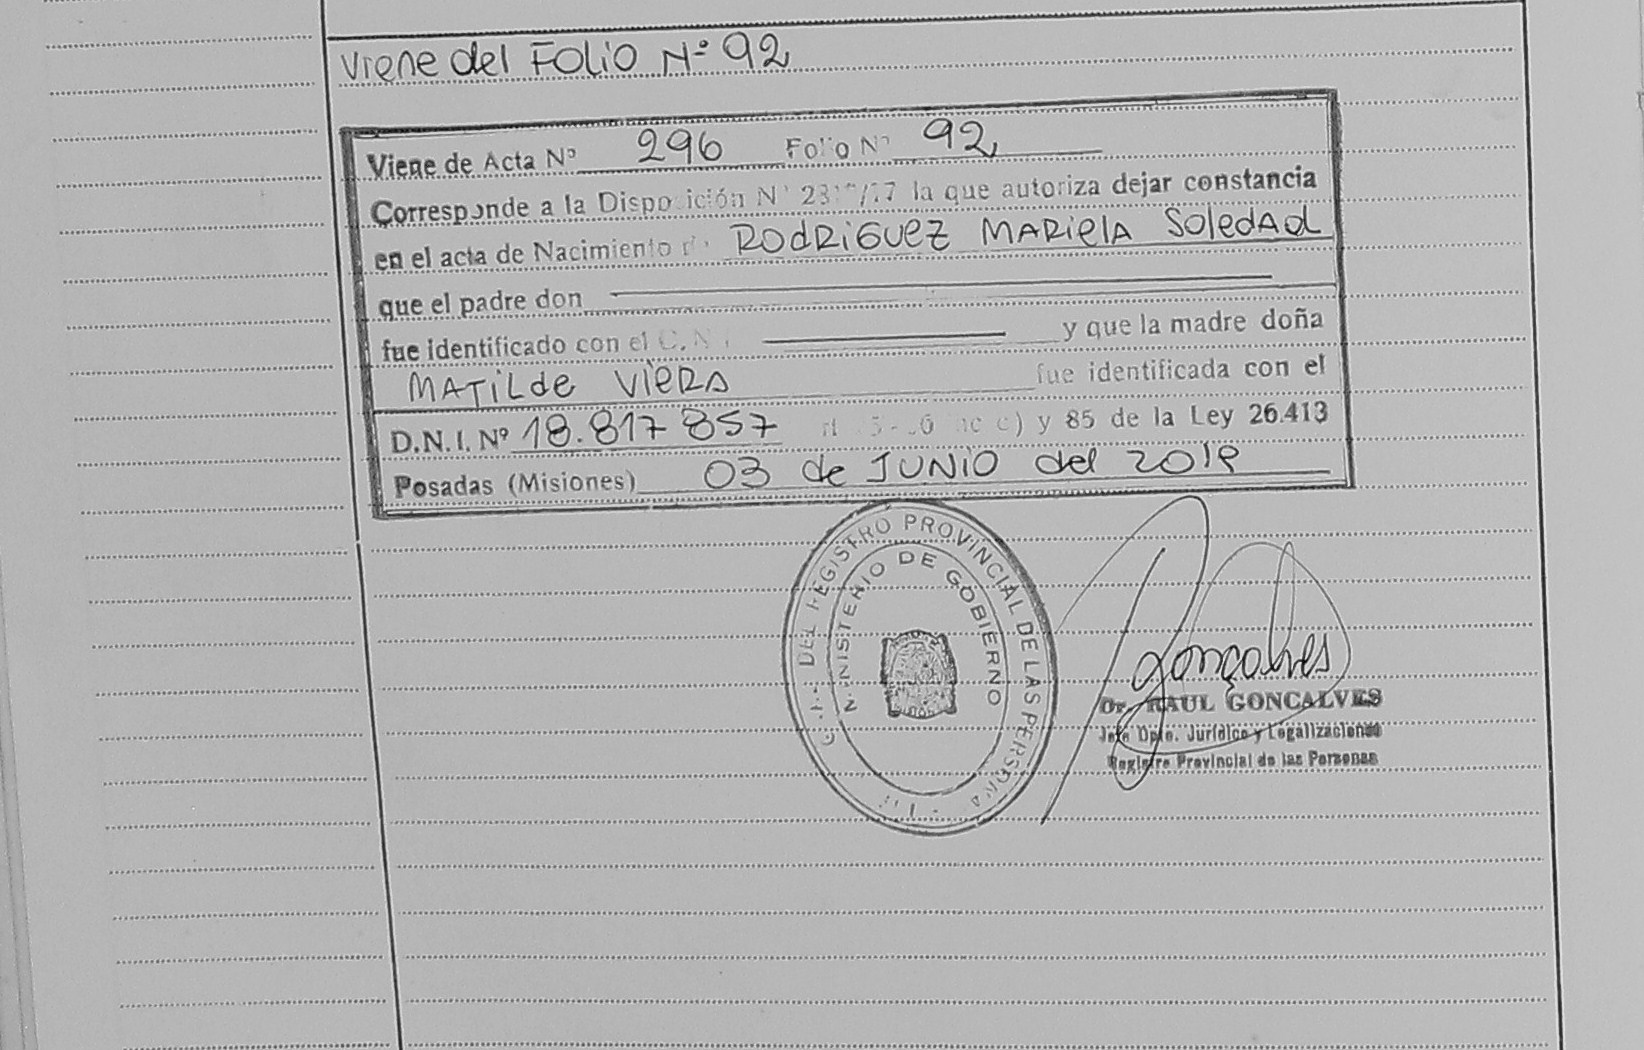 Viene del Folio Nº 92
Viene de Acta Nº 296 Folio Nº 92
Corresponde a la Disposición Nº la que autoriza dejar constancia
en el acta de Nacimiento RODRIGUEZ MARIELA SOLEDAD
que el padre don
fue identificado con el y que la madre doña
MATILDE VIERA fue identificada con el
D.N.I. Nº 18.817857 y 85 de la Ley 26.413
Posadas (Misiones) 03 de JUNIO del 2019
DEL REGISTRO PROVINCIAL DE LAS PERSONAS
MINISTERIO DE GOBIERNO
Gonçalves
Dr. RAUL GONCALVES
Jefe Dpto. Jurídico y Legalizaciones
Registro Provincial de las Personas